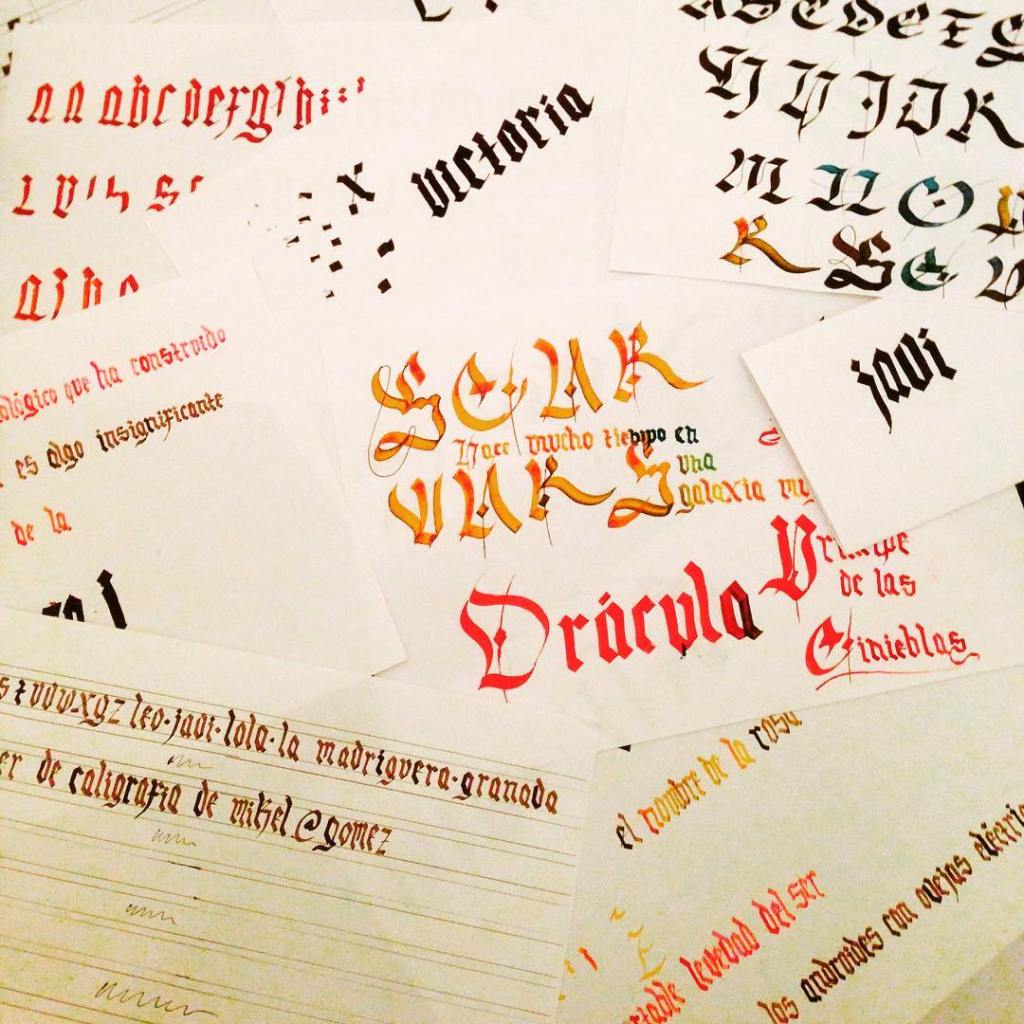 a a abcdefghi
victoria
x
A B C D E F G
H I J O K
M N O
R S E V
javi
ológico que ha construido
es algo insignificante
de la
SCUR
Hace mucho tiempo en
una
VURS
galaxia
Drácula
Príncipe
de las
Tinieblas
stuvwxyz leo·javi·lola·la madriguera·granada
er de caligrafia de mikel @gomez
el nombre de la rosa
levedad del ser
los androides con ovejas